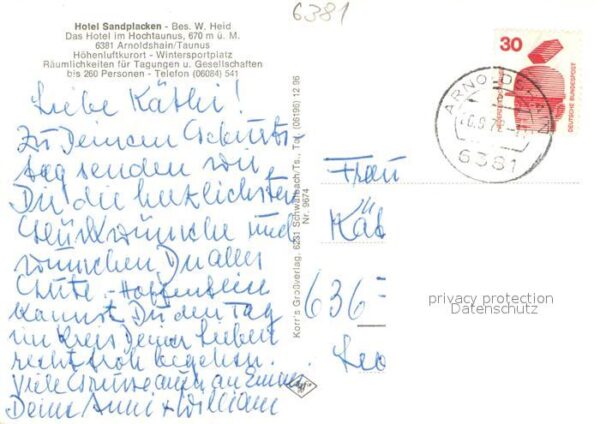 6381
Hotel Sandplacken - Bes. W. Heid
Das Hotel im Hochtaunus, 670 m ü. M.
6381 Arnoldshain/Taunus
Höhenluftkurort - Wintersportplatz
Räumlichkeiten für Tagungen u. Gesellschaften
bis 260 Personen - Telefon (06084) 541
Liebe Käthi!
Zu Deinem Geburts-
tag senden wir
Dir die herzlichsten
Glückwünsche und
wünschen Dir alles
Gute. Hoffentlich
kannst Du den Tag
im Kreis Deiner Lieben
recht froh begehen.
Viele Grüsse auch an Emmi
Deine Anni + William
Korr's Großverlag, 6231 Schwalbach/Ts., Tel. (06196) 12 96
Nr. 9674
30
DEUTSCHE BUNDESPOST
6381
Frau
Kät
636
privacy protection
Datenschutz